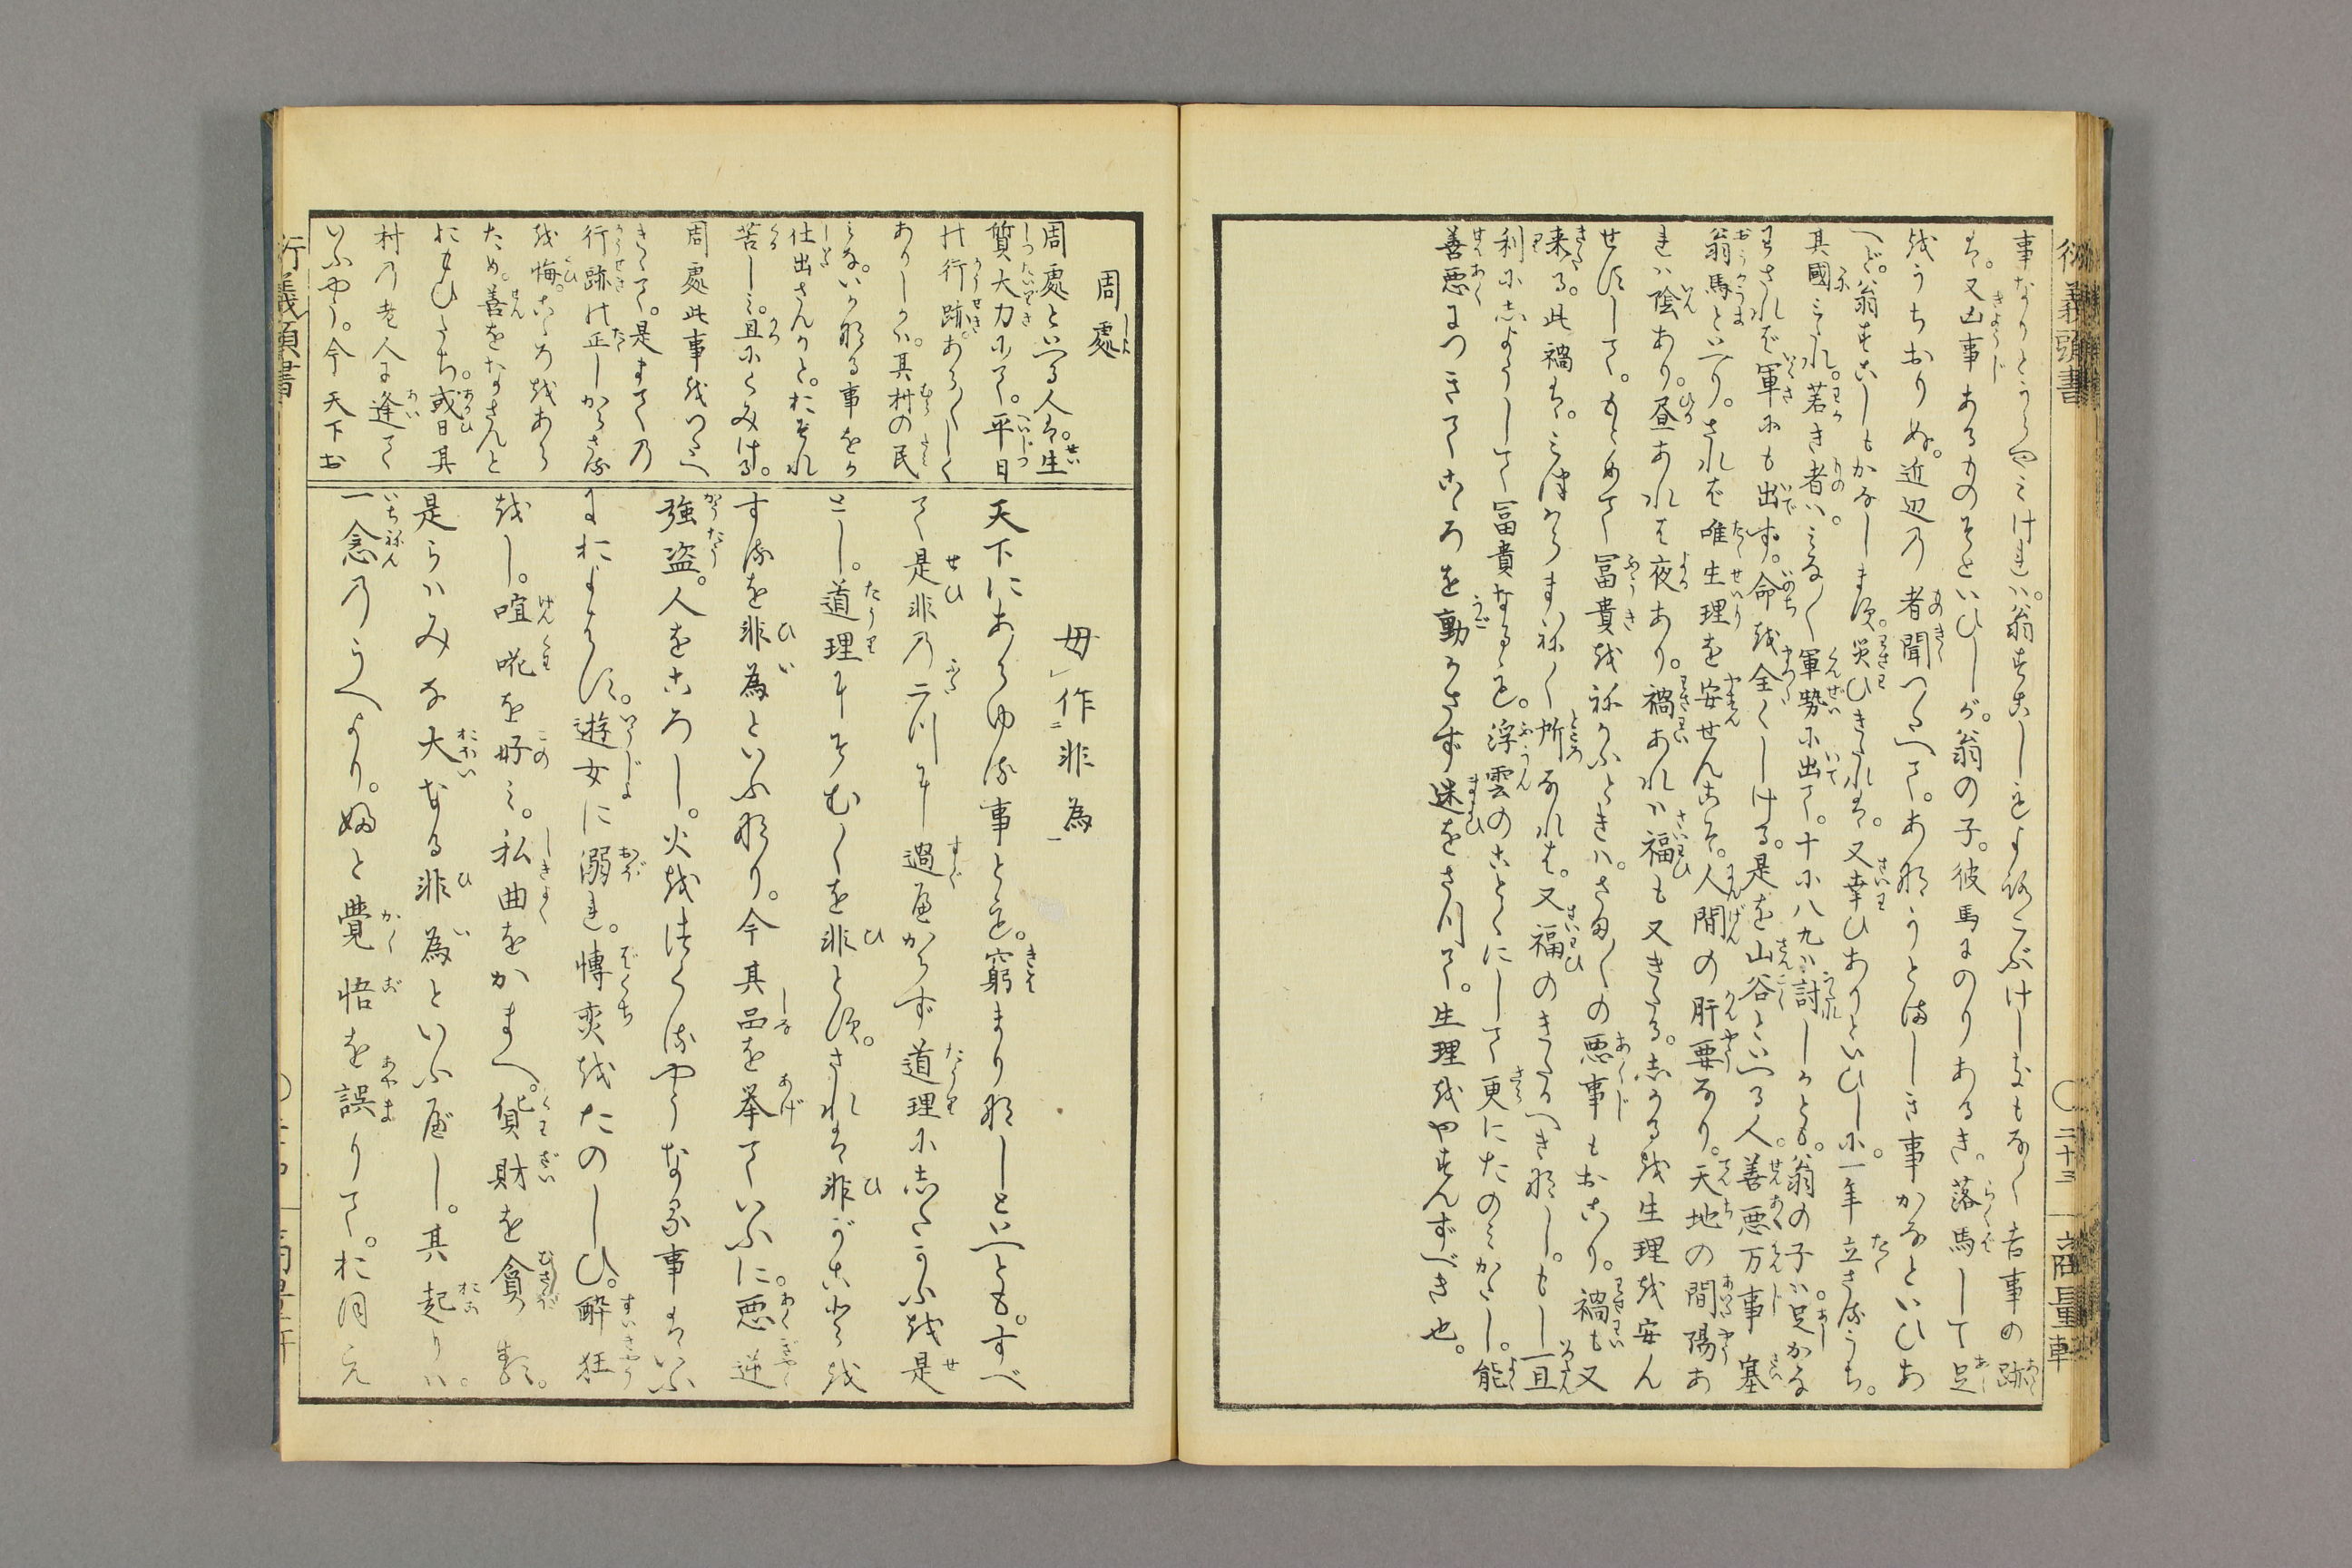 衍義頭書
二十三
商量軒
事なりとうらやミけれハ。翁すこしもよろこぶけしきもなく吉事の跡
は。又凶事あるものぞといひしが。翁の子。彼馬にのりありき。落馬して足
をうちおりぬ。近辺の者聞つたへて。あやうとましき事かなといひあ
へど。翁すこしもかなします。災ひきたれは。又幸ひありといひしに。一年立ざるうち。
其國みだれ。若き者ハ。みな〱軍勢に出て。十に八九ハ討しかとも。翁の子ハ足かな
わされば軍にも出ず。命を全くしける。是を山谷といへる人。善悪万事塞
翁馬といへり。されば唯生理を安せんこそ。人間の肝要なり。天地の間陽あ
れハ陰あり。昼あれは夜あり。禍あれハ福も又きたる。しかるを生理を安ん
せずして。もとめて冨貴をねがふときハ。さま〲の悪事もおこり。禍も又
来る。此禍は。みづからまねく所なれは。又福のきたるへき縁なし。もし一旦
利によりして冨貴なるとも。浮雲のことくにして更にたのみがたし。能
善悪につきてこゝろを動かさず迷をさりて。生理をやすんずべき也。
周處
周處といへる人は。生
質大力にて。平日
の行跡。あら〱しく
ありしかハ。其村の民
みな。いかなる事をか
仕出さんかと。おそれ
苦しミ。且にくみける。
周處此事をつたへ
きゝて。是まての
行跡の正しからさる
を悔。こゝろをあら
ため。善をなさんと
おもひたち。或日其
村の老人に逢て
いふやう。今天下お
毋作非為
天下にあらゆる事とも。窮まりなしといへとも。すべ
て是非の二つに過べからず道理にしたかふを是
とし。道理にそむくを非とす。されは非がことを
するを非為といふなり。今其品を挙ていふに。悪逆
強盗。人をころし。火をつくるやうなる事はいふ
におよばす。遊女に溺れ。博奕をたのしひ。酔狂
をし。喧𠵅を好ミ。私曲をかまへ。貨財を貪る類。
是らハみな大なる非為といふべし。其起りハ。
一念のうへより。ぬと覺悟を誤りて。お月え
衍義頭書